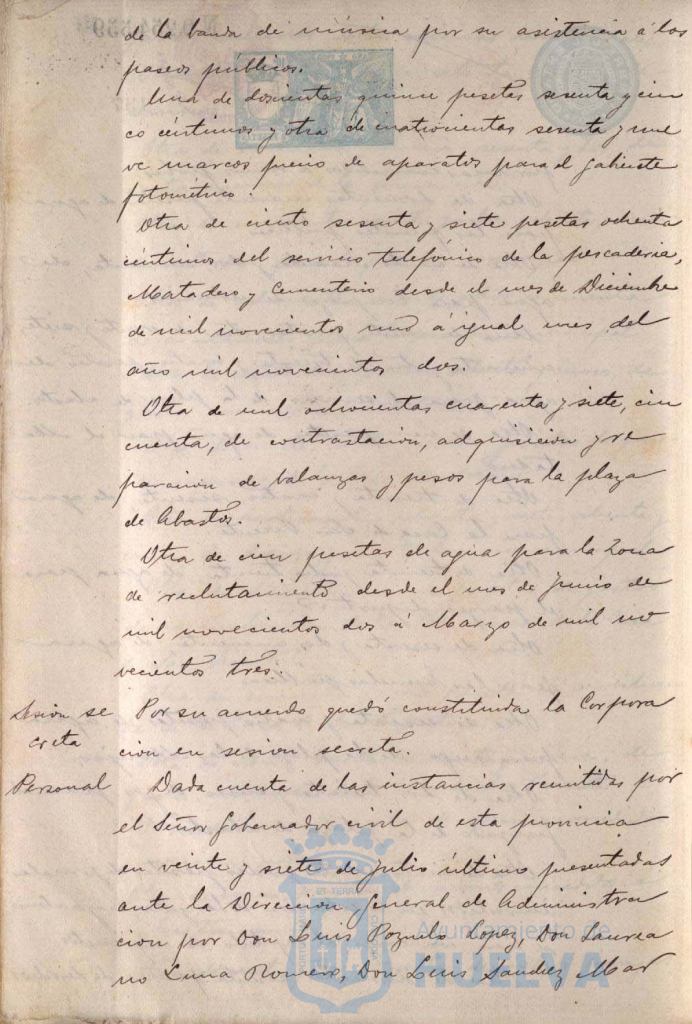 de la banda de música por su asistencia á los
paseos públicos.
Una de doscientas quince pesetas sesenta y cin
co céntimos y otra de cuatrocientas sesenta y nue
ve marcos precio de aparatos para el Gabinete
fotométrico.
Otra de ciento sesenta y siete pesetas ochenta
céntimos del servicio telefónico de la pescadería,
Matadero y Cementerio desde el mes de Diciembre
de mil novecientos uno á igual mes del
año mil novecientos dos.
Otra de mil ochocientas cuarenta y siete, cin
cuenta, de contrastacion, adquisicion y re
paracion de balanzas y pesos para la plaza
de Abastos.
Otra de cien pesetas de agua para la Zona
de reclutamiento desde el mes de Junio de
mil novecientos dos á Marzo de mil no
vecientos tres.
Sesion se
creta
Por su acuerdo quedó constituida la Corpora
cion en sesion secreta.
Personal
Dada cuenta de las instancias remitidas por
el Señor Gobernador civil de esta provincia
en veinte y siete de Julio último presentadas
ante la Direccion General de Administra
cion por Don Luis Pozuelo Lopez, Don Laurea
no Luna Romero, Don Luis Sanchez Mar
Ayuntamiento de
HUELVA